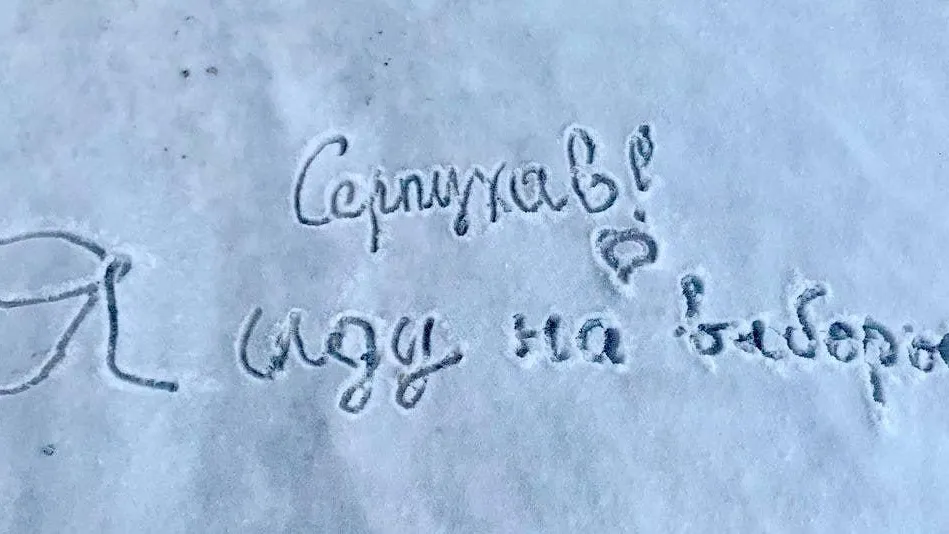 Серпухов!
Я иду на выборы